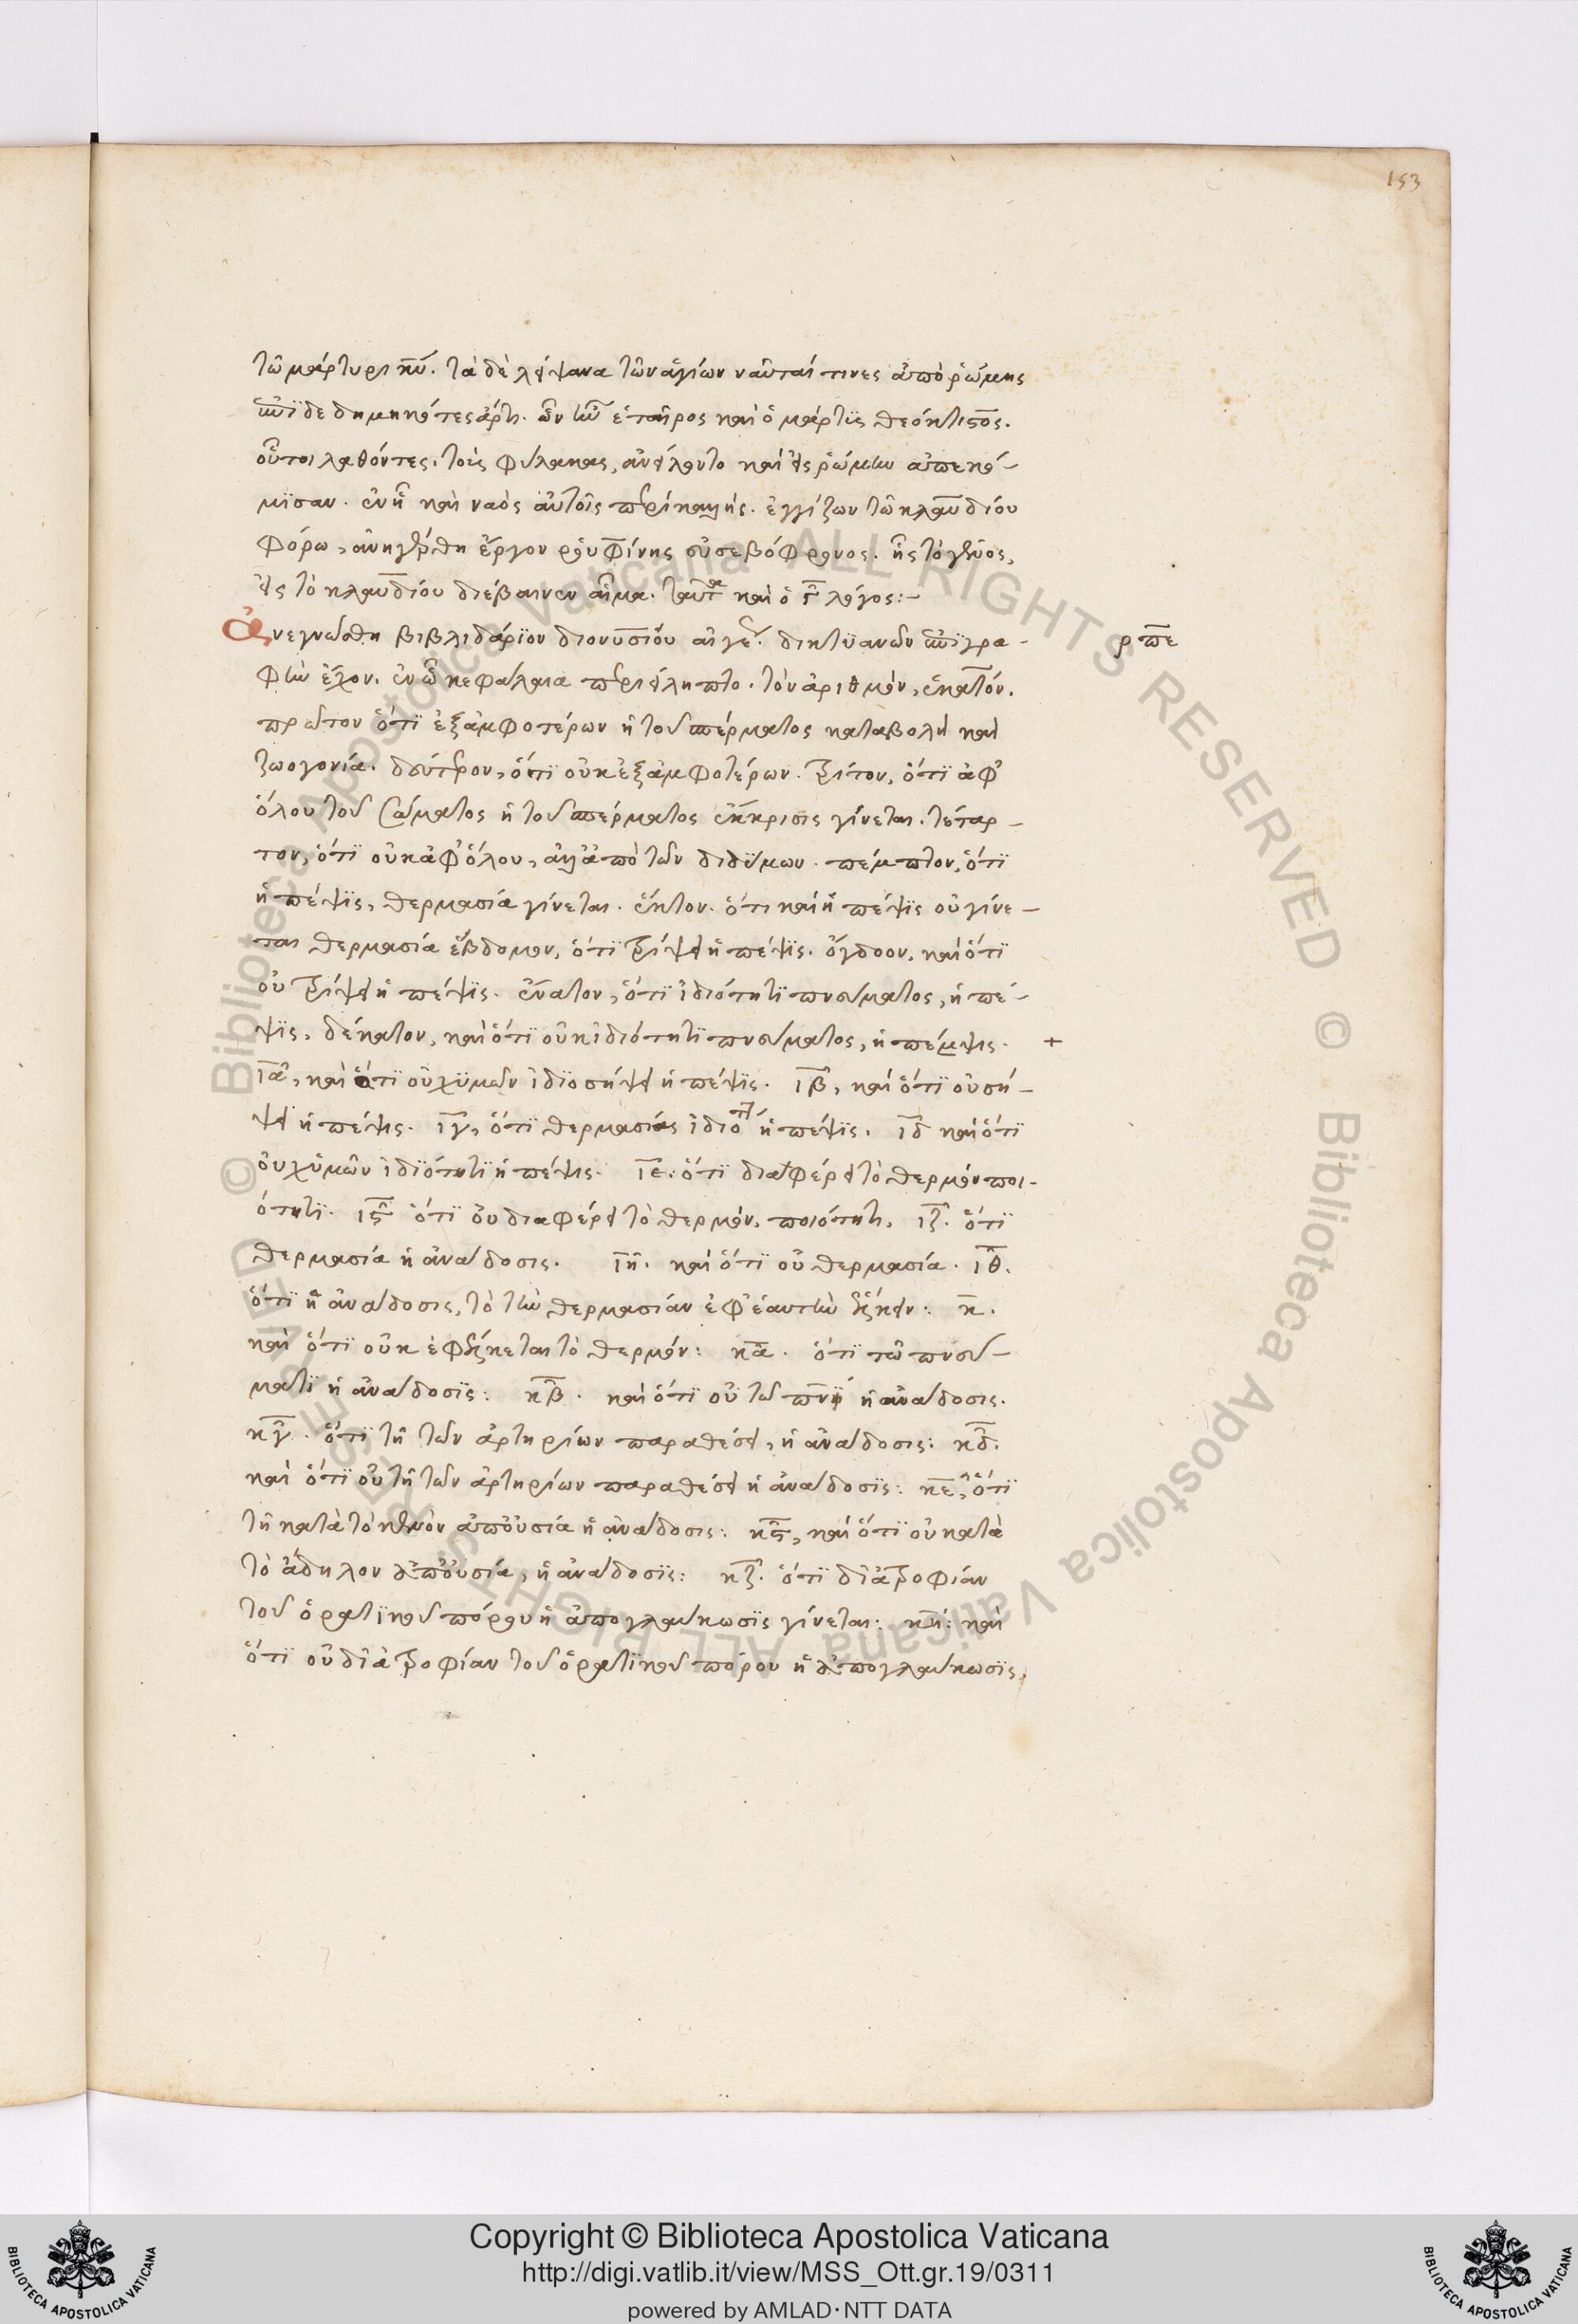 153
τῶ μάρτυρι κυ̅. τὰ δὲ λείψανα τῶν ἁγίων ναῦταί τινες ἀπὸ ῥώμης
ἐπϊδεδημηκότες ἄρτι. ὧν ἦν ἑταῖρος καὶ ὁ μάρτϋς θεόκτιστος.
οὗτοι λαθόντες τοὺς φύλακας, ἀνείλοντο καὶ εἰς ῥώμην ἀπεκό-
μϊσαν. ἐν ἧ καὶ ναὸς αὐτοῖς περικαλλὴς. ἐγγίζων τῶ κλαυδίου
φόρω, ἀνηγέρθη ἔργον ῥουφίνης εὐσεβόφρονος. ἧς τὸ γένος,
εἰς τὸ κλαυδίου διέβαινεν αἷμα. ταῦτα καὶ ὁ γ̅ λόγος:-
Ἀνεγνώσθη βιβλιδάρϊον διονυσίου αἰγέ. δικτϋανῶν ἐπϊγρα-
ρπε
φὴν ἔχον. ἐν ὧ κεφάλαια περιείληπτο τὸν ἀριθμὸν, ἑκατόν.
πρῶτον ὅτϊ ἐξ ἀμφοτέρων ἡ τοῦ σπέρματος καταβολὴ καὶ
ζωογονία. δεύτερον, ὅτϊ οὐκ ἐξ ἀμφοτέρων. τρίτον, ὅτϊ ἀφ'
ὅλου τοῦ σώματος ἡ τοῦ σπέρματος ἔκκρισις γίνεται. τέταρ-
τον, ὅτϊ οὐκ ἀφ' ὅλου, ἀλλ' ἀπὸ τῶν διδύμων. πέμπτον, ὅτϊ
ἡ πέψϊς, θερμασία γίνεται. ἕκτον. ὅτι καὶ ἡ πέψϊς οὐ γίνε-
ται θερμασία ἕβδομον, ὅτϊ τρίψει ἡ πέψϊς. ὄγδοον, καὶ ὅτϊ
οὐ τρίψει ἡ πέψϊς. ἔνατον, ὅτϊ ἰδιότητϊ πνεύματος, ἡ πέ-
ψϊς, δέκατον, καὶ ὅτϊ οὐκ ἰδιότητϊ πνεύματος, ἡ πέμψις. +
ια̅, καὶ ὅτϊ οὐ χϋμῶν ἰδϊο σήψει ἡ πέψϊς. ιβ̅, καὶ ὅτϊ οὐ σή-
ψει ἡ πέψις. ιγ̅, ὅτϊ θερμασίας ἰδιότη ἡ πέψϊς. ιδ̅ καὶ ὅτϊ
οὐ χϋμῶν ἰδϊότητϊ ἡ πέψις. ιε̅. ὅτϊ διαφέρει τὸ θερμὸν ποι-
ότητϊ. ις̅ ὅτϊ οὐ διαφέρει τὸ θερμὸν, ποιότητι, ιζ̅. ὅτϊ
θερμασία ἡ ἀνάδοσις. ιη̅. καὶ ὅτϊ οὐ θερμασία. ιθ̅.
ὅτϊ ἡ ἀνάδοσις, τὸ τὴν θερμασίαν ἐφ' ἑαυτὴν ἕλκειν: κ̅.
καὶ ὅτϊ οὐκ ἐφέλκεται τὸ θερμόν: κα̅. ὅτϊ τῶ πνεύ-
ματϊ ἡ ἀνάδοσϊς: κβ̅. καὶ ὅτϊ οὐ τῶ πνϊ̅ ἡ ἀνάδοσις.
κγ̅. ὅτϊ τῆ τῶν ἀρτηριῶν παραθέσει, ἡ ἀνάδοσις: κδ̅.
καὶ ὅτϊ οὐ τῆ τῶν ἀρτηριῶν παραθέσει ἡ ἀνάδοσϊς: κε̅, ὅτϊ
τῆ κατὰ τὸ κενὸν ἀπουσία ἡ ἀνάδοσις: κς̅, καὶ ὅτϊ οὐ κατὰ
τὸ ἄδηλον ἀπουσία, ἡ ἀνάδοσϊς: κζ̅. ὅτϊ δι' ἀτροφίαν
τοῦ ὁρατϊκοῦ πόρου ἡ ἀπογλαύκωσϊς γίνεται: κη̅: καὶ
ὅτϊ οὐ δι' ἀτροφίαν τοῦ ὁρατϊκοῦ πόρου ἡ ἀπογλαύκωσϊς,
© Biblioteca Apostolica Vaticana ALL RIGHTS RESERVED © Biblioteca Apostolica Vaticana ALL RIGHTS RESERVED
Copyright © Biblioteca Apostolica Vaticana
http://digi.vatlib.it/view/MSS_Ott.gr.19/0311
powered by AMLAD·NTT DATA
BIBLIOTECA APOSTOLICA VATICANA
BIBLIOTECA APOSTOLICA VATICANA